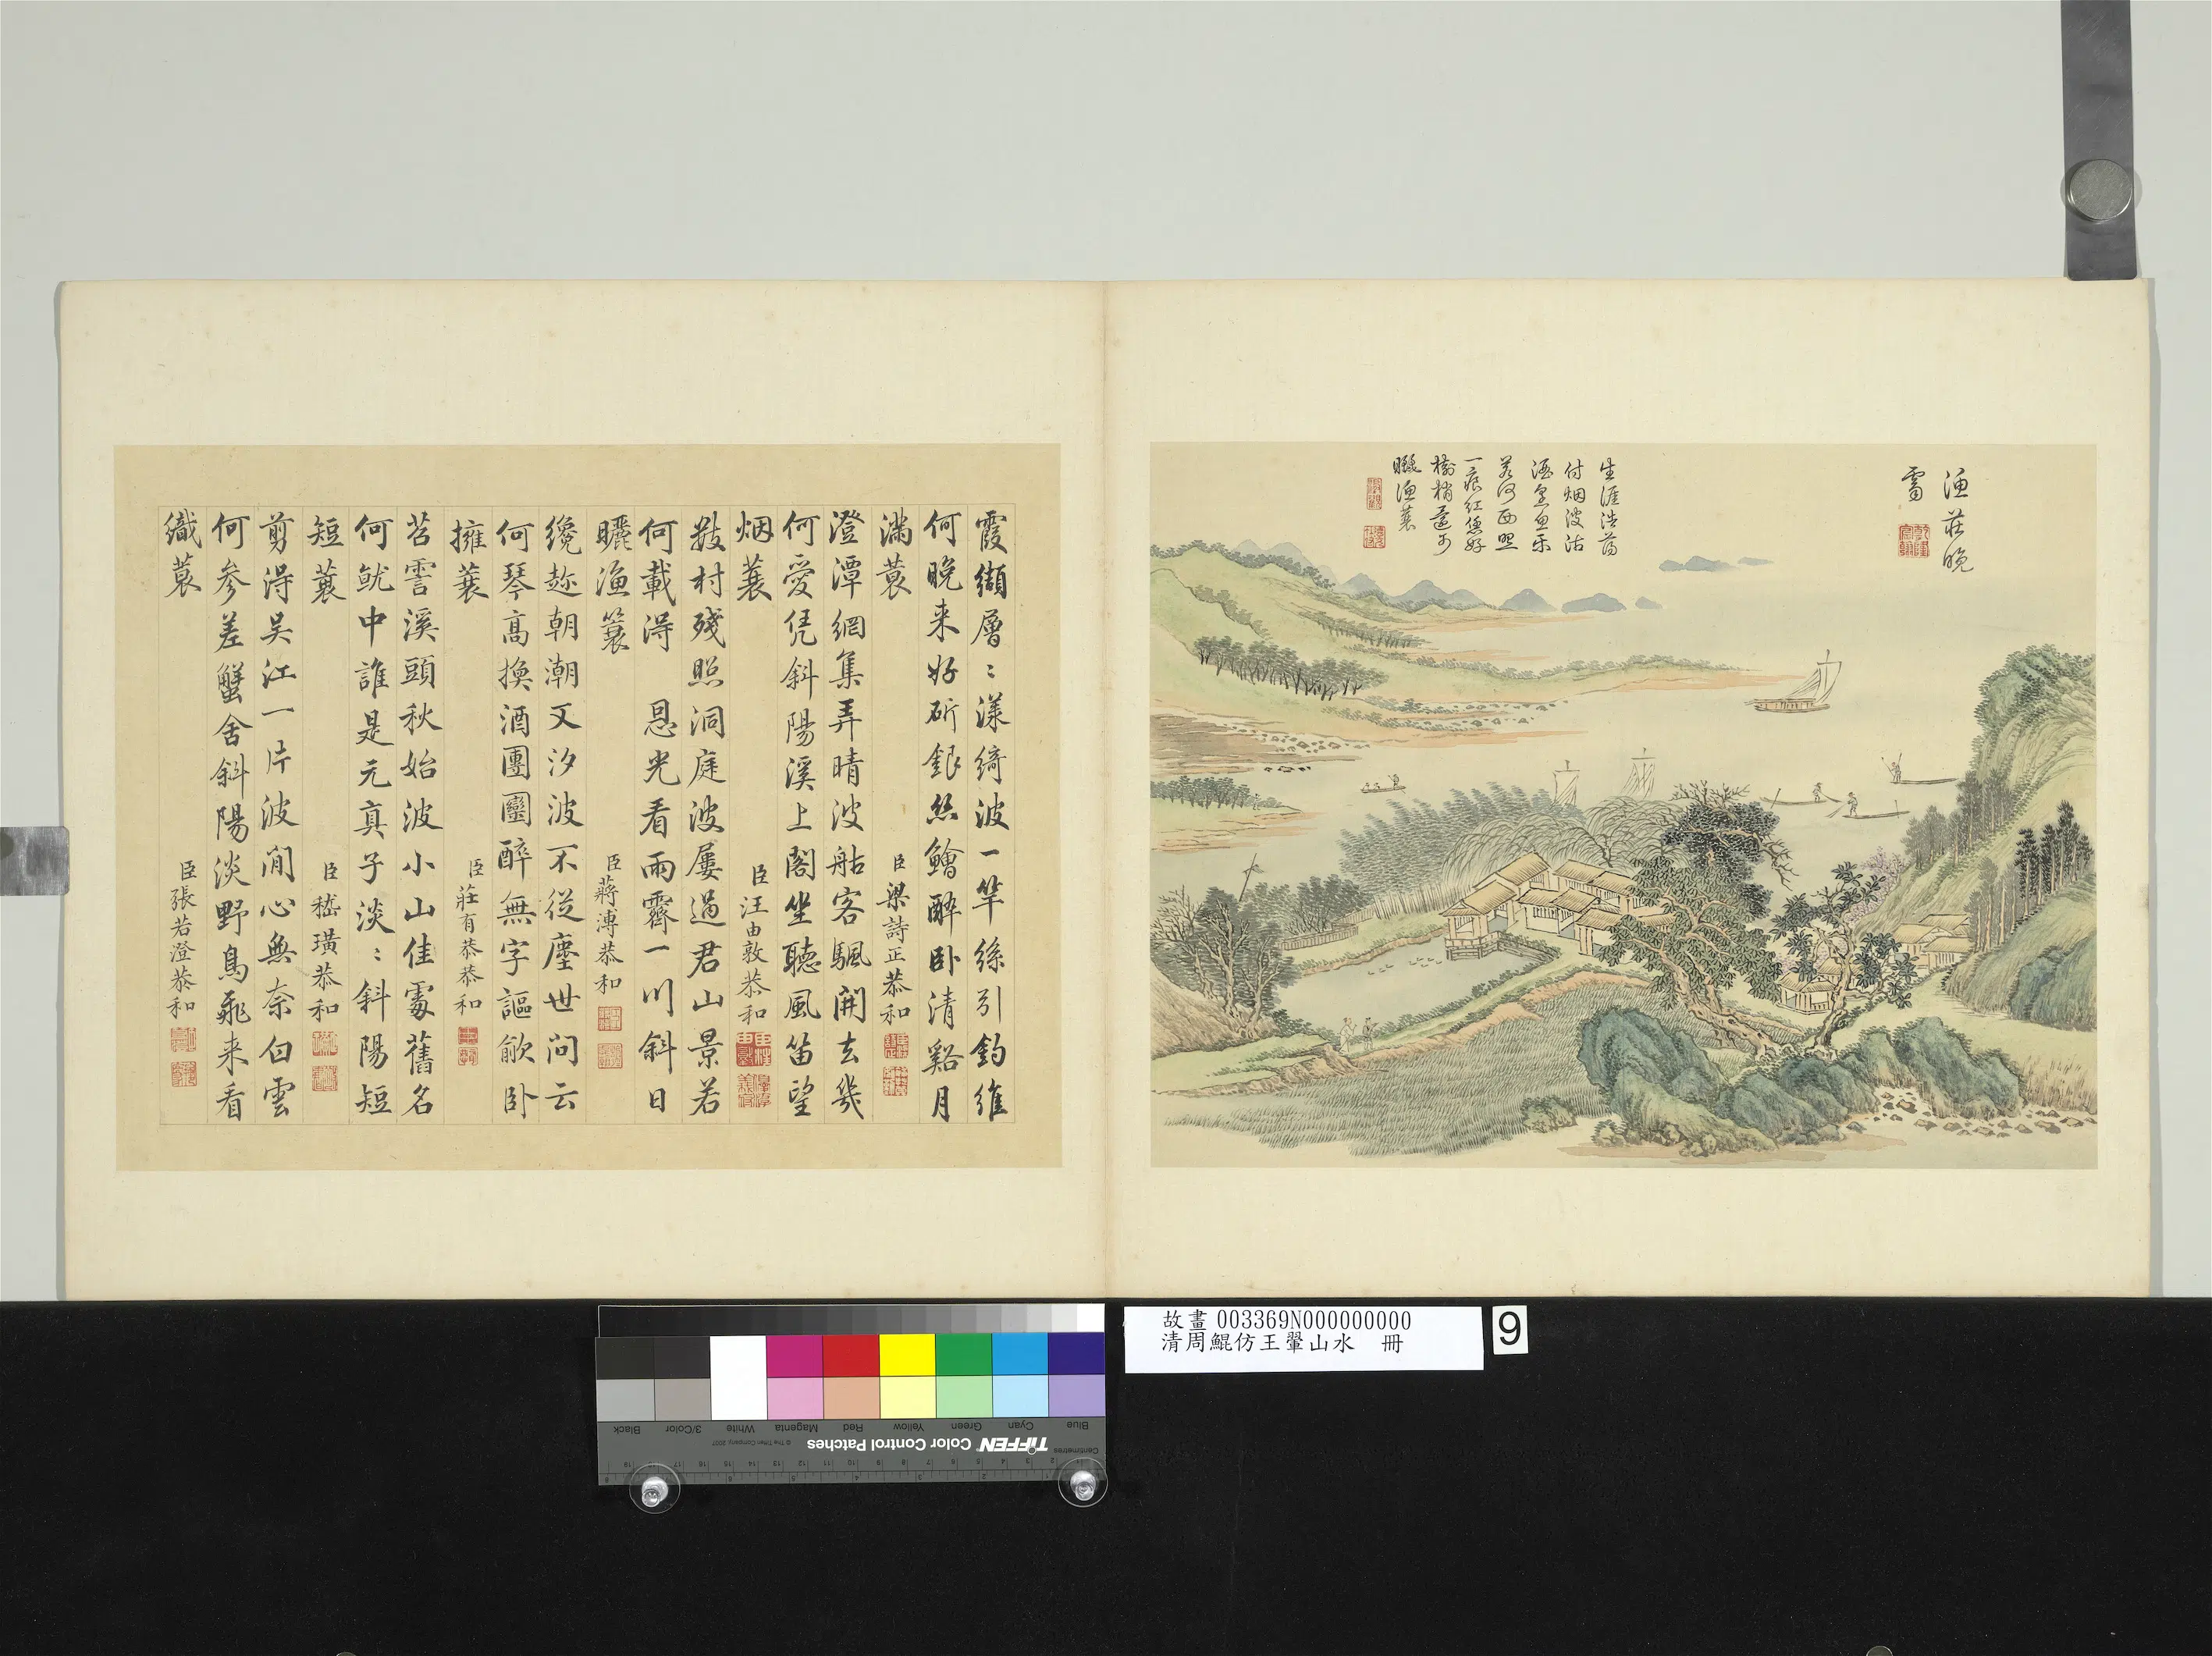 漁莊晚
霽
生涯浩蕩
付烟波沽
酒烹魚乐
若何西照
一痕紅恁好
樹梢還可
曬漁蓑
霞纈層〻漾綺波一竿絲引釣維
何晚来好斫銀絲鱠醉卧清谿月
滿蓑
臣梁詩正恭和
澄潭網集弄晴波舩客颿開去幾
何愛凭斜陽溪上閣坐聽風笛望
烟蓑
臣汪由敦恭和
數村殘照洞庭波屡過君山景若
何載得 恩光看雨霽一川斜日
曬漁簑
臣蔣溥恭和
纔趂朝潮又汐波不從塵世问云
何琴髙換酒團圞醉無字謳歈卧
擁蓑
臣莊有恭恭和
苕霅溪頭秋始波小山佳處舊名
何就中誰是元真子淡〻斜陽短
短蓑
臣嵇璜恭和
剪得吴江一片波閒心無奈白雲
何參差蟹舍斜陽淡野鳥飛来看
織蓑
臣張若澄恭和
故畫 003369N000000000
清周鯤仿王翬山水 冊
9
Centimetres
TIFFEN Color Control Patches
© The Tiffen Company, 2007
Blue Cyan Green Yellow Red Magenta White 3/Color Black